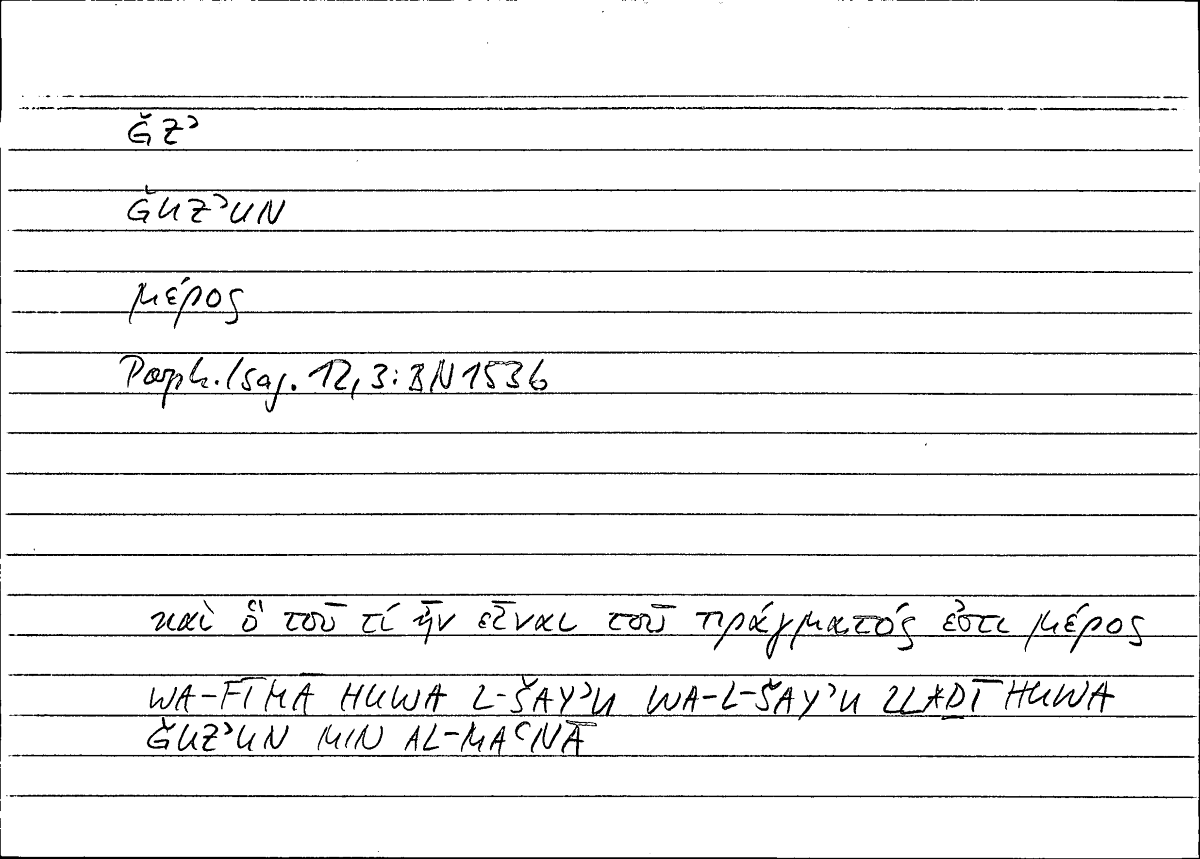 ǦZʾ
ǦUZʾUN
μέρος
Porph. Isag. 12, 3: BN 1536
καὶ ὃ τοῦ τί ἦν εἶναι τοῦ πράγματός ἐστι μέρος
WA-FĪMĀ HUWA L-ŠAYʾU WA-L-ŠAYʾU LLAḎĪ HUWA
ǦUZʾUN MIN AL-MAʿNĀ